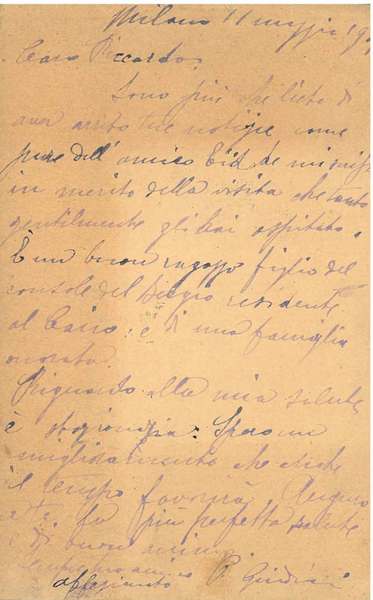 Milano 11 maggio 19
Caro Riccardo,
Sono più che lieto di
aver avuto tue notizie come
pure dell'amico Eid che mi
in merito della visita che tanto
gentilmente gli hai ospitato.
È un buon ragazzo figlio del
console del Belgio residente
al Cairo: e di una famiglia
onorata.
Riguardo alla mia salute
è stazionaria. Spero un
miglioramento che anche
il tempo favorirà. Auguro
a te la più perfetta salute
e di buon
affezionato P.